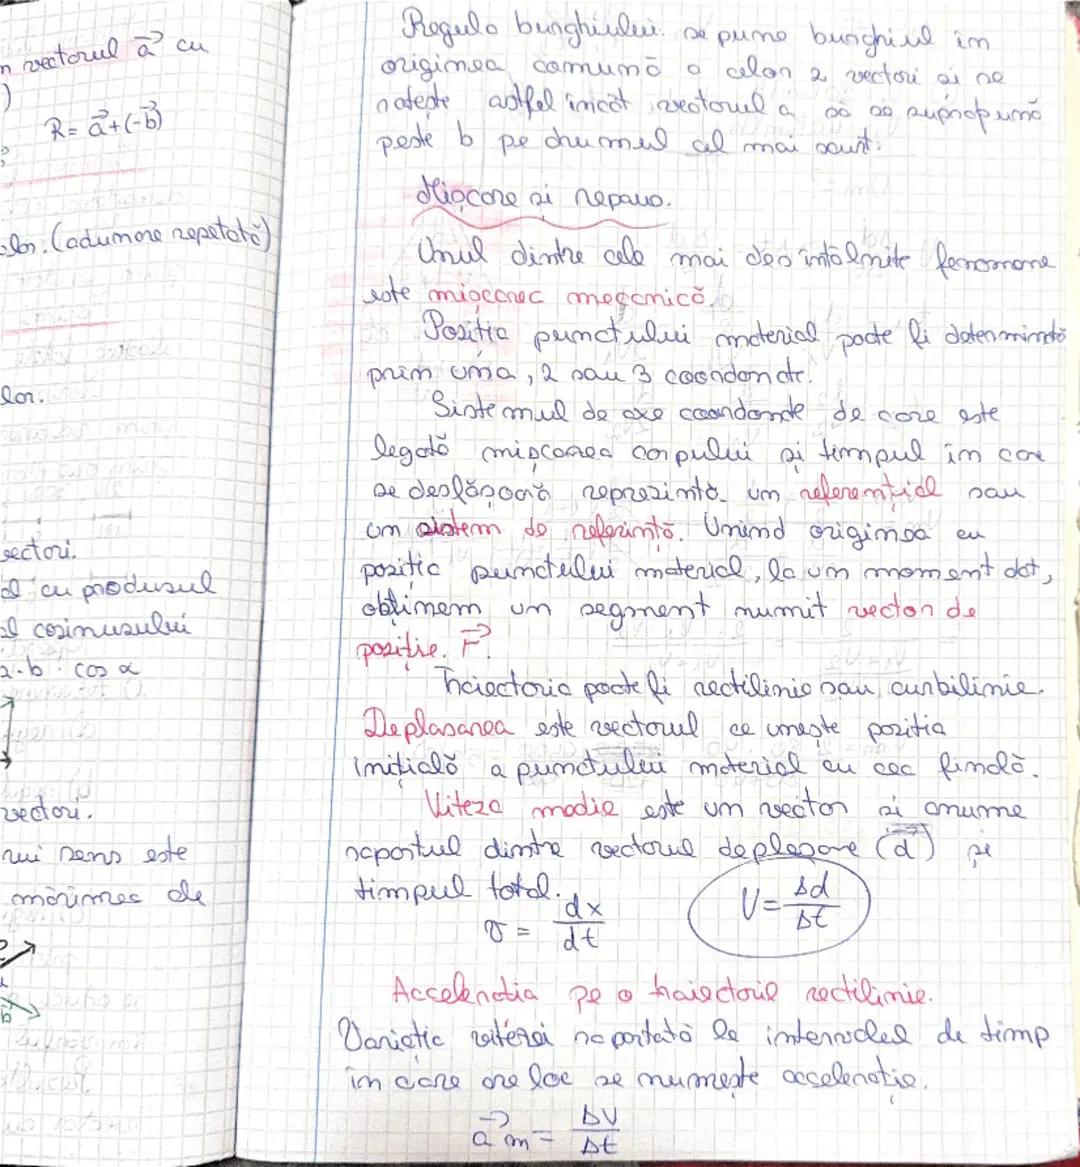 n vectorul a⃗ cu
)
R= a⃗+(-b⃗)
lor. (adunare repetată)
lor.
vectori.
al cu produsul
al cosinusului
a·b · cos α
vectori.
rui sens este
mărimea de
b
Regula burghiului: se pune burghiul în
originea comună a celor 2 vectori și se
rotește astfel încât vectorul a să se suprapună
peste b pe drumul cel mai scurt.
Mișcare și repaus.
Unul dintre cele mai des întâlnite fenomene
este mișcarea mecanică.
Poziția punctului material poate fi determinată
prin una, 2 sau 3 coordonate.
Sistemul de axe coordonate de care este
legată mișcarea corpului și timpul în care
se desfășoară reprezintă un referențial sau
un sistem de referință. Unind originea cu
poziția punctului material, la un moment dat,
obținem un segment numit vector de
poziție. r⃗.
Traiectoria poate fi rectilinie sau curbilinie.
Deplasarea este vectorul ce unește poziția
inițială a punctului material cu cea finală.
Viteza medie este un vector și anume
raportul dintre vectorul deplasare (d⃗) și
timpul total.
v = dx/dt
V = Δd/Δt
Accelerația pe o traiectorie rectilinie.
Variația vitezei raportată la intervalul de timp
în care are loc se numește accelerație.
a⃗m = ΔV/Δt